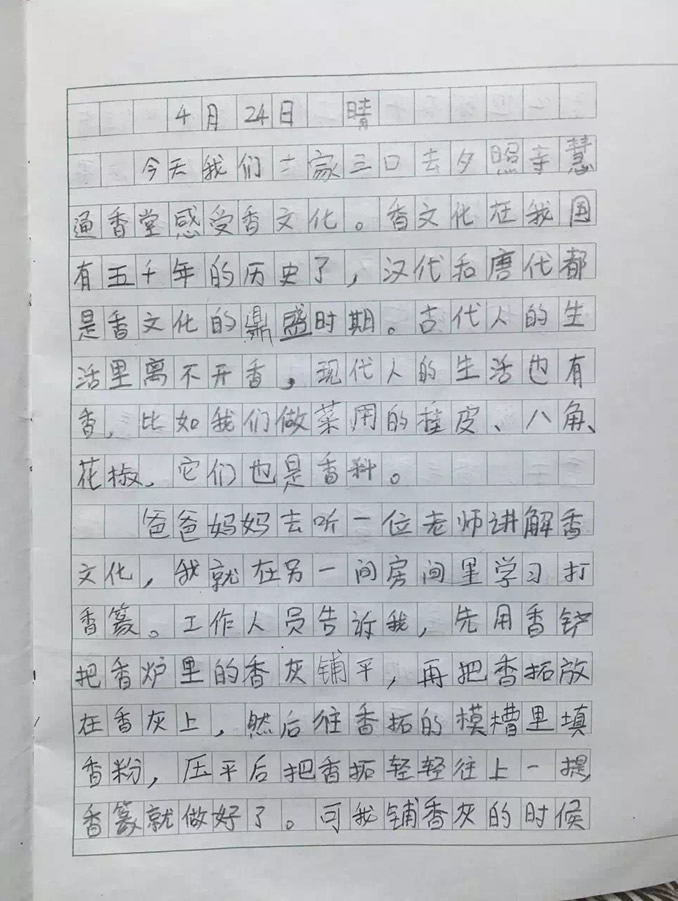 4月24日 晴
今天我们一家三口去夕照寺慧
通香堂感受香文化。香文化在我国
有五千年的历史了，汉代和唐代都
是香文化的鼎盛时期。古代人的生
活里离不开香，现代人的生活也有
香，比如我们做菜用的桂皮、八角、
花椒，它们也是香料。
爸爸妈妈去听一位老师讲解香
文化，我就在另一间房间里学习打
香篆。工作人员告诉我，先用香铲
把香炉里的香灰铺平，再把香拓放
在香灰上，然后往香拓的模槽里填
香粉，压平后把香拓轻轻往上一提，
香篆就做好了。可我铺香灰的时候